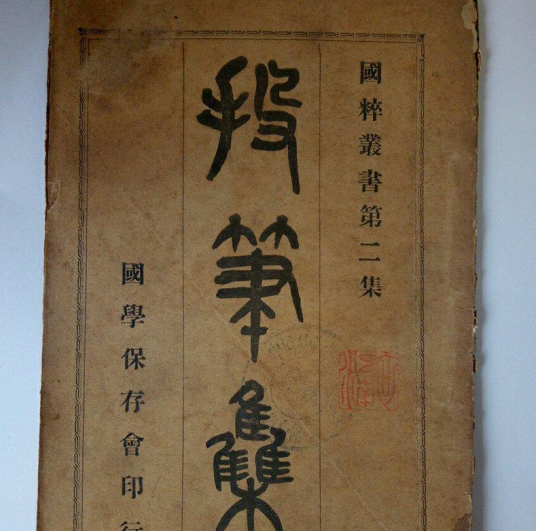 國粹叢書第二集
投筆集
國學保存會印行